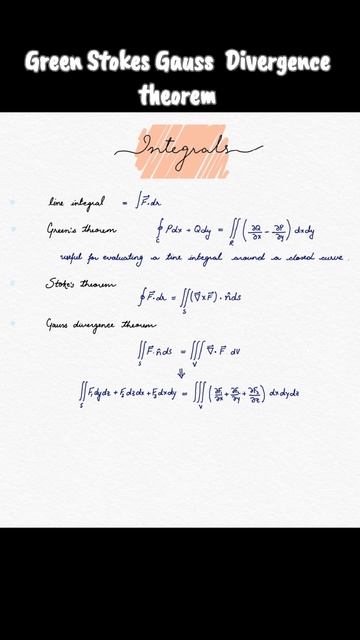 Green Stokes Gauss Divergence
theorem
Integrals
line integral = ∫F⃗.dr
Green's theorem ∮_C Pdx + Qdy = ∬_R (∂Q/∂x - ∂P/∂y) dxdy
useful for evaluating a line integral around a closed curve.
Stoke's theorem
∮F⃗.dr = ∬_S (∇⃗×F⃗). n̂ds
Gauss divergence theorem
∬_S F⃗.n̂ds = ∭_V ∇⃗.F⃗ dV
⇓
∬_S F₁dydz + F₂dzdx + F₃dxdy = ∭_V (∂F₁/∂x + ∂F₂/∂y + ∂F₃/∂z) dxdydz